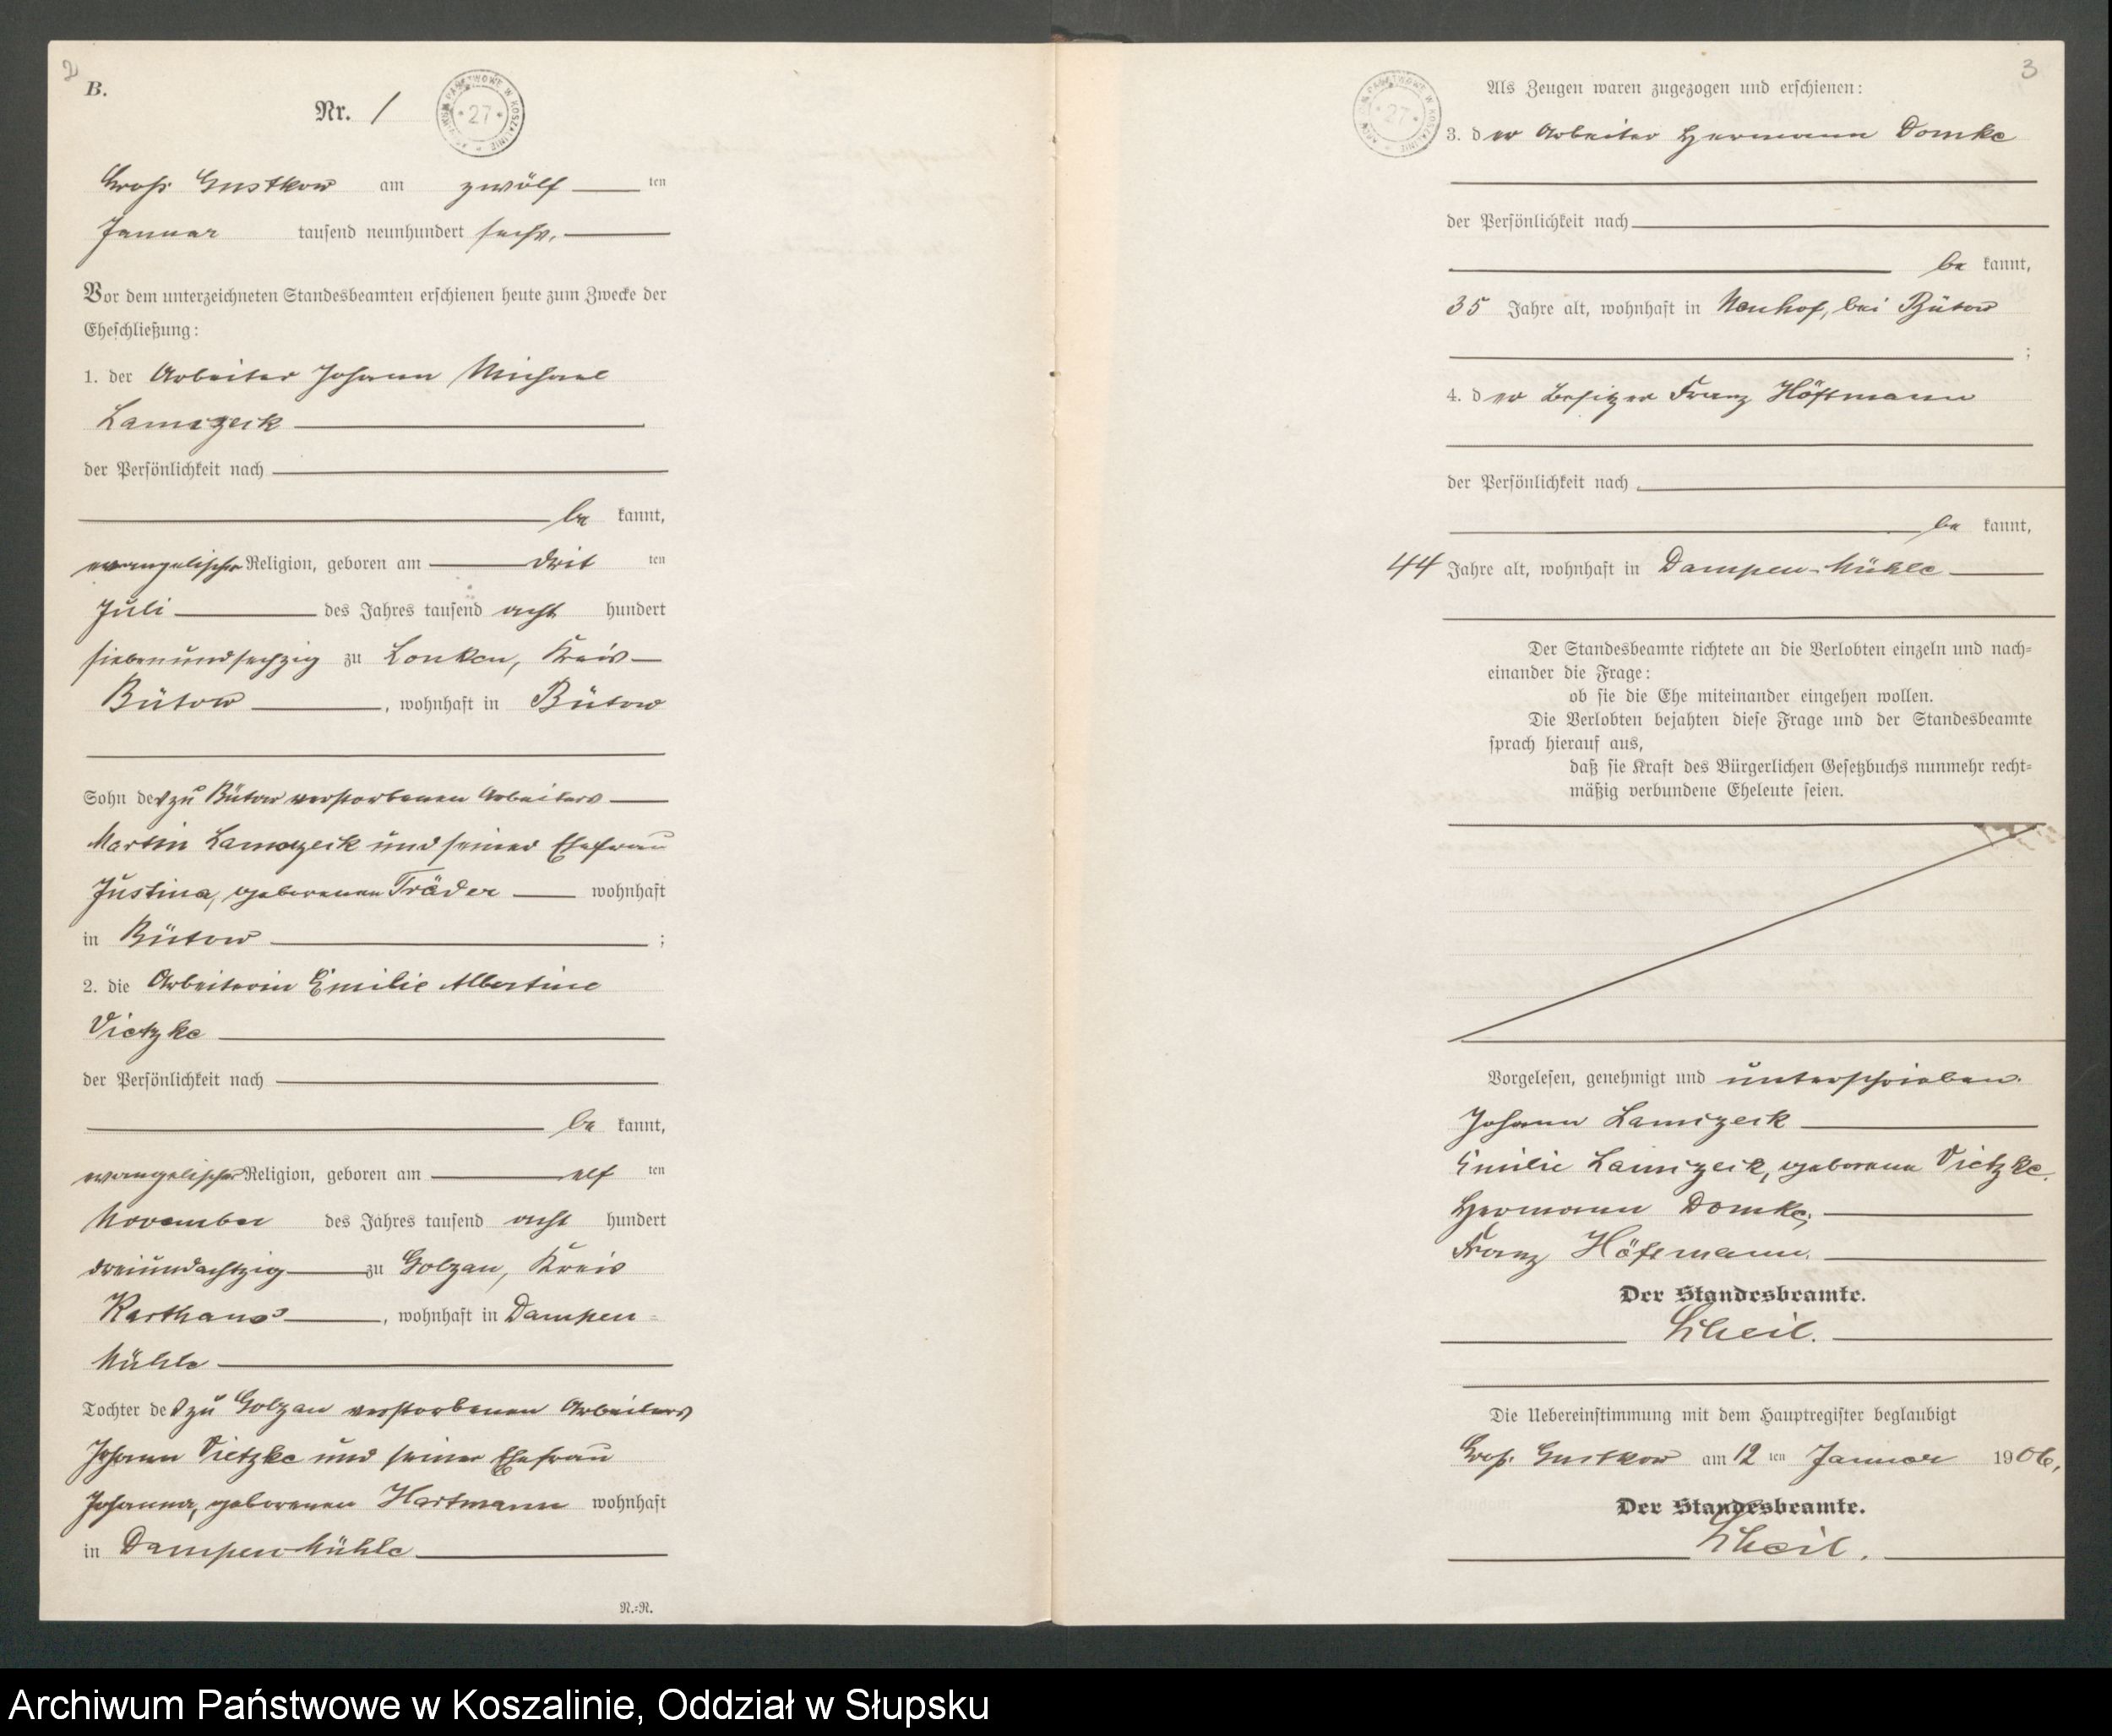 2
B.
Nr. 1
27
Groß Gustkow am zwölf ten
Januar tausend neunhundert sechs.
Vor dem unterzeichneten Standesbeamten erschienen heute zum Zwecke der
Eheschließung:
1. der Arbeiter Johann Michael
Lamczeik
der Persönlichkeit nach
be kannt,
evangelischer Religion, geboren am drit ten
Juli des Jahres tausend acht hundert
siebenundsechzig zu Lonken, Kreis
Bütow, wohnhaft in Bütow
Sohn des zu Bütow verstorbenen Arbeiters
Martin Lamczeik und seiner Ehefrau
Justina, geborenen Träder wohnhaft
in Bütow ;
2. die Arbeiterin Emilie Albertine
Vietzke
der Persönlichkeit nach
be kannt,
evangelischer Religion, geboren am elf ten
November des Jahres tausend acht hundert
dreiundachtzig zu Golzau, Kreis
Karthaus, wohnhaft in Dampen-
Mühle
Tochter des zu Golzau verstorbenen Arbeiters
Johann Vietzke und seiner Ehefrau
Johanna, geborenen Hartmann wohnhaft
in Dampen-Mühle
N.-R.
3
27
Als Zeugen waren zugezogen und erschienen:
3. der Arbeiter Hermann Domke
der Persönlichkeit nach
be kannt,
35 Jahre alt, wohnhaft in Neuhof, bei Bütow
;
4. der Besitzer Franz Höftmann
der Persönlichkeit nach
be kannt,
44 Jahre alt, wohnhaft in Dampen-Mühle
Der Standesbeamte richtete an die Verlobten einzeln und nach-
einander die Frage:
ob sie die Ehe miteinander eingehen wollen.
Die Verlobten bejahten diese Frage und der Standesbeamte
sprach hierauf aus,
daß sie Kraft des Bürgerlichen Gesetzbuchs nunmehr recht-
mäßig verbundene Eheleute seien.
Vorgelesen, genehmigt und unterschrieben.
Johann Lamczeik
Emilie Lamczeik, geborene Vietzke.
Hermann Domke,
Franz Höftmann.
Der Standesbeamte.
Scheil.
Die Uebereinstimmung mit dem Hauptregister beglaubigt
Groß Gustkow am 12 ten Januar 1906,
Der Standesbeamte.
Scheil.
Archiwum Państwowe w Koszalinie, Oddział w Słupsku